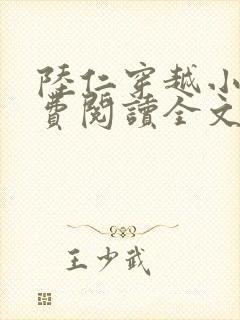 陸仁穿越小
費閱讀全文
王少武